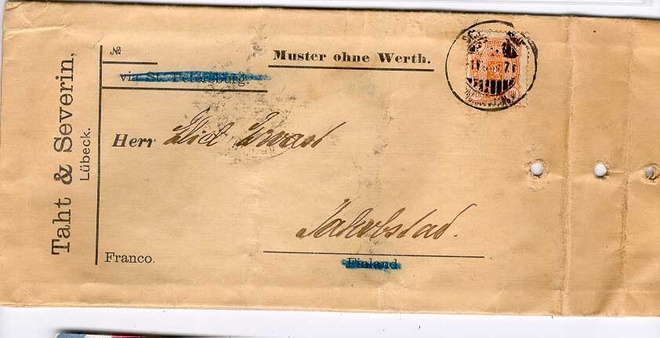 Taht & Severin,
Lübeck.
№
Muster ohne Werth.
via St. Petersburg.
Herr
Jakobstad.
Finland
Franco.